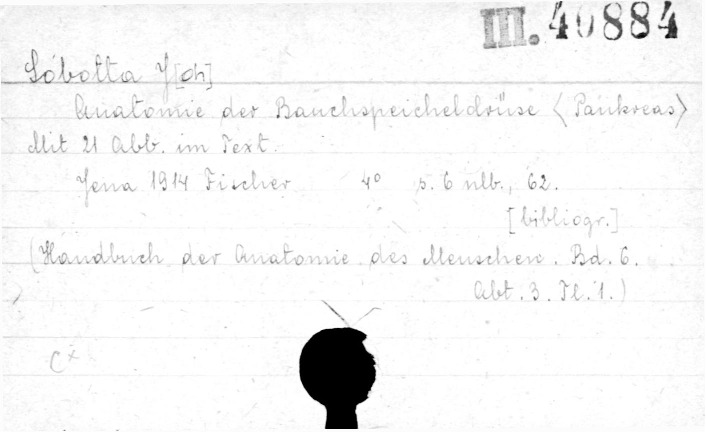 III. 40884
Sobotta J[oh]
Anatomie der Bauchspeicheldrüse <Pankreas>
Mit 21 Abb. im Text.
Jena 1914 Fischer 4° s. 6 nlb., 62.
[bibliogr.]
(Handbuch der Anatomie des Menschen. Bd. 6.
Abt. 3. Tl. 1.)
C×